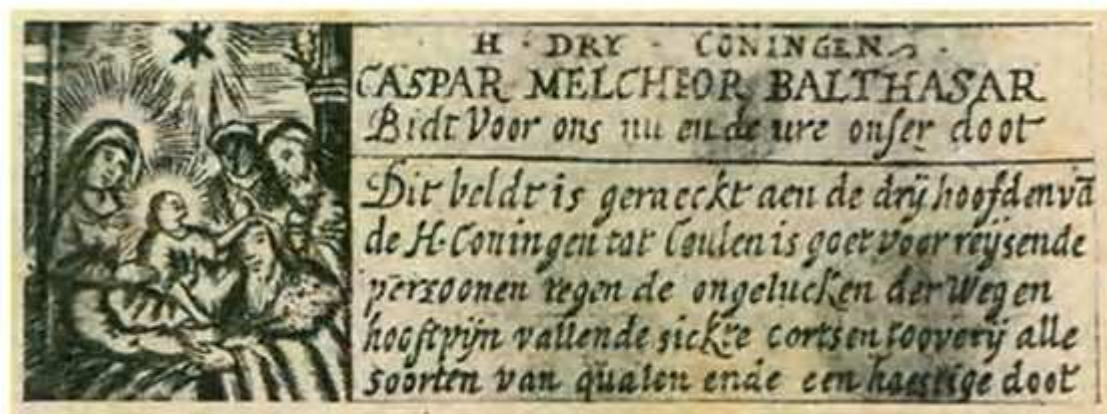 H · DRY · CONINGEN ·
CASPAR MELCHIOR BALTHASAR
Bidt Voor ons nu ende ure onser doot
Dit beldt is geraeckt aen de drÿ hoofden vā
de H. Coningen tot Ceulen is goet voor reÿsende
perzoonen tegen de ongelucken der Wegen
hooftpÿn vallende sickte cortsen toverÿ alle
soorten van qualen ende een haestige doot